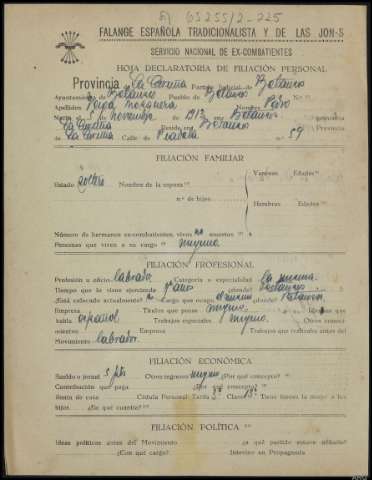 65255/2-225
FALANGE ESPAÑOLA TRADICIONALISTA Y DE LAS JON-S
SERVICIO NACIONAL DE EX-COMBATIENTES
HOJA DECLARATORIA DE FILIACIÓN PERSONAL
Provincia de La Coruña Partido Judicial de Betanzos
Ayuntamiento de Betanzos Pueblo de Betanzos N.º
Apellidos Nombre Pedro
Nació 5 de noviembre de 1912 en Betanzos Provincia
La Coruña Reside en Betanzos
La Coruña Calle de n.º 59
FILIACIÓN FAMILIAR
Varones Edades
Estado soltero Nombre de la esposa
n.º de hijos
Hembras Edades
Número de hermanos ex-combatientes, vivos no muertos
Personas que viven a su cargo ninguno
FILIACIÓN PROFESIONAL
Profesión u oficio labrador Categoría o especialidad la misma
Tiempo que la viene ejerciendo años ¿dónde? Betanzos
¿Está colocado actualmente? Cargo que ocupa ¿dónde? Betanzos
Empresa Títulos que posee ninguno Idiomas que
habla español Trabajos especiales ninguno Otros conoci-
mientos Empresa Trabajos que realizaba antes del
Movimiento labrador
FILIACIÓN ECONÓMICA
Sueldo o jornal 5 pts Otros ingresos ninguno ¿Por qué concepto?
Contribución que paga ¿Por qué concepto?
Renta de casa Cédula Personal Tarifa 3ª Clase 13ª Tiene bienes la mujer o los
hijos ¿De qué cuantía?
FILIACIÓN POLÍTICA
Ideas políticas antes del Movimiento ¿a qué partido estuvo afiliado?
¿Con qué cargo? Intervino en Propaganda